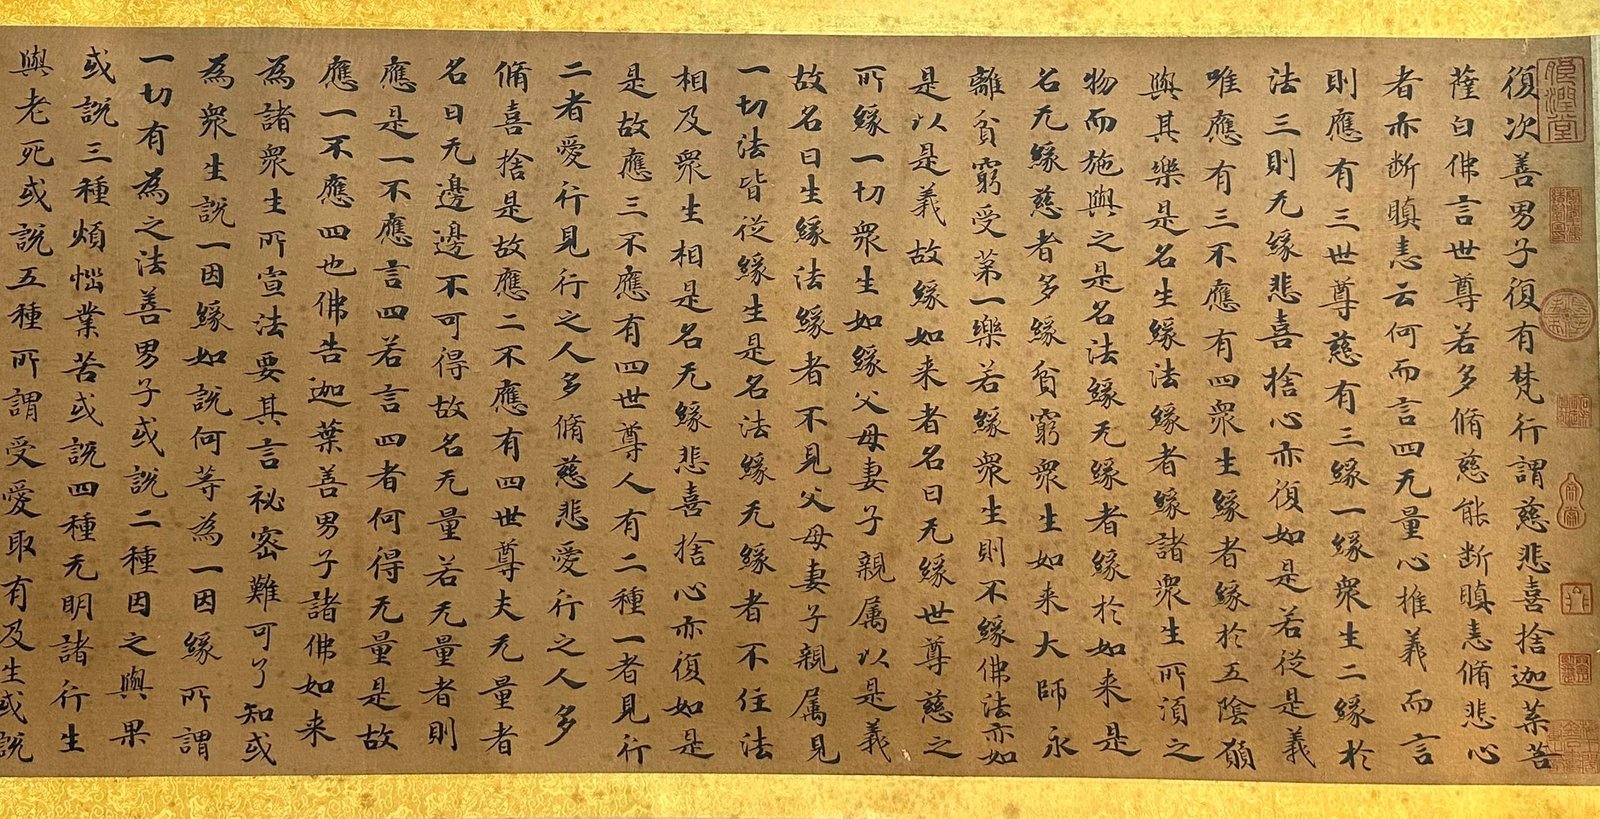 復次善男子復有梵行謂慈悲喜捨迦葉菩
薩白佛言世尊若多脩慈能断瞋恚脩悲心
者亦断瞋恚云何而言四无量心推義而言
則應有三世尊慈有三緣一緣衆生二緣於
法三則无緣悲喜捨心亦復如是若從是義
唯應有三不應有四衆生緣者緣於五陰願
與其樂是名生緣法緣者緣諸衆生所湏之
物而施與之是名法緣无緣者緣於如来是
名无緣慈者多緣貧窮衆生如来大師永
離貧窮受第一樂若緣衆生則不緣佛法亦如
是以是義故緣如来者名曰无緣世尊慈之
所緣一切衆生如緣父母妻子親属以是義
故名曰生緣法緣者不見父母妻子親属見
一切法皆從緣生是名法緣无緣者不住法
相及衆生相是名无緣悲喜捨心亦復如是
是故應三不應有四世尊人有二種一者見行
二者愛行見行之人多脩慈悲愛行之人多
脩喜捨是故應二不應有四世尊夫无量者
名曰无邊邊不可得故名无量若无量者則
應是一不應言四若言四者何得无量是故
應一不應四也佛告迦葉善男子諸佛如来
為諸衆生所宣法要其言祕密難可了知或
為衆生說一因緣如說何等為一因緣所謂
一切有為之法善男子或說二種因之與果
或說三種煩惱業苦或說四種无明諸行生
與老死或說五種所謂受愛取有及生或說